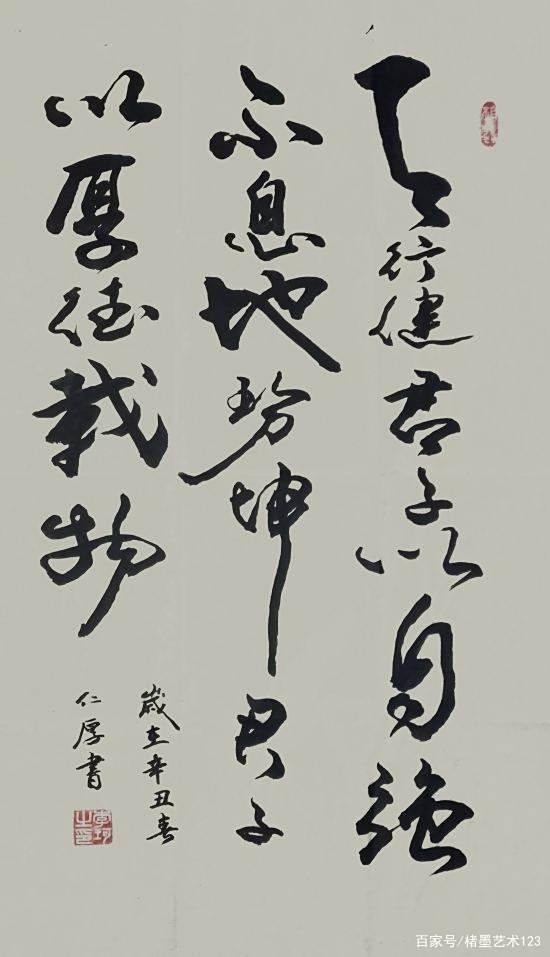 天行健君子以自强
不息地势坤君子
以厚德载物
岁在辛丑春
仁厚书
百家号/楮墨艺术123